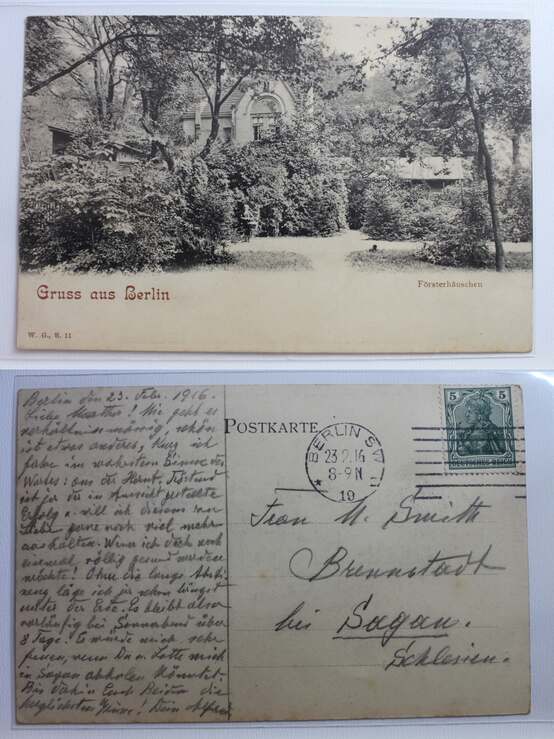 Gruss aus Berlin
Försterhäuschen
W. G., S. 11
Berlin den 23. Febr. 1916.
Liebe Mutter! Mir geht es
verhältnismässig, schön
ist etwas anderes, kurz ich
fahre im wahrsten Sinne des
Wortes: aus der Haut. Jedoch
ist ja die in Aussicht gestellte
Erfolg u. will ich diesem zur
Liebe gerne noch viel mehr
aushalten. Wenn ich doch noch
einmal völlig gesund werden
möchte! Ohne die lange
läge ich ja schon längst
unter der Erde. Es bleibt also
vorläufig bei Sonnabend über
8 Tage. Es würde mich sehr
freuen, wenn Du u. Lotte mich
in Sagan abholen könntet.
Bis dahin Euch Beiden die
herzlichsten Grüsse! Dein Alfred
POSTKARTE
BERLIN SW
23.2.16
8-9 N
* 19
5 5
DEUTSCHES REICH
Frau M. Smith
Brennstadt
bei Sagan.
Schlesien.